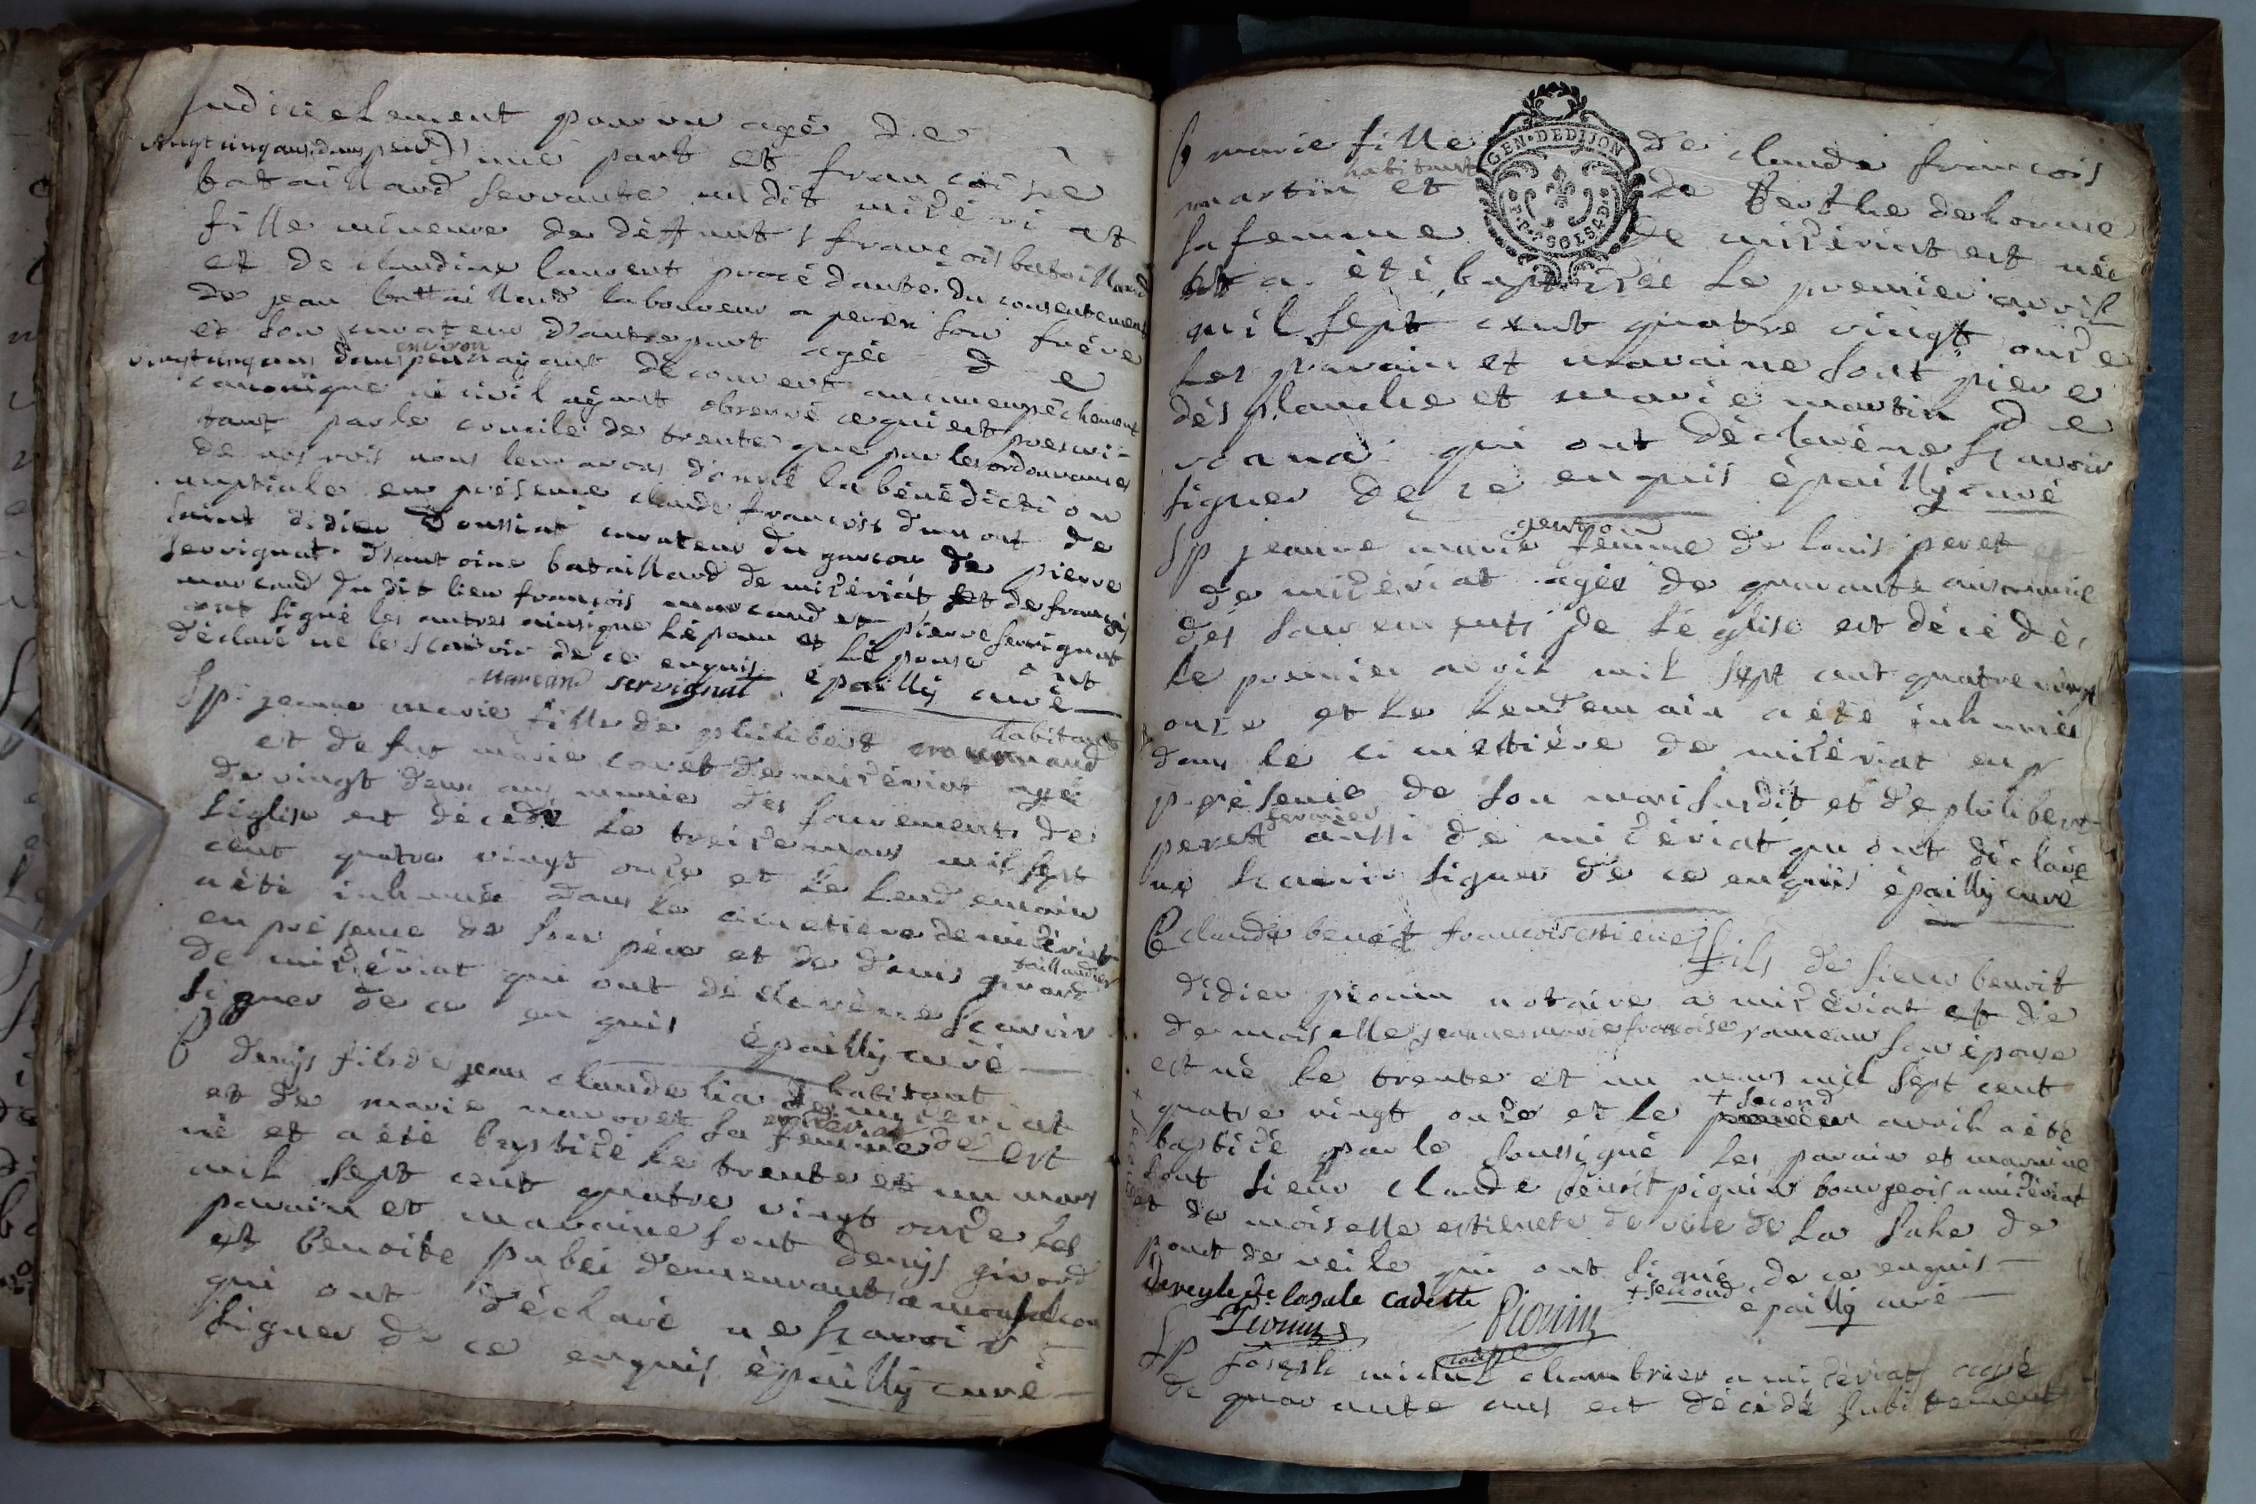 judicielement pourvu agé de
vingt cinq ans d'une part et françoise
bataillard servante audit misériat
fille mineure de déffunts françois bataillard
et de claudine laurent procédante du consentement
de jean battaillard laboureur a perex son frére
et son curateur d'autre part agée de
vingt cinq ans environ n'ayant découvert aucun empêchement
canonique ni civil ayant observé ce qui est prescri-
tant par le concile de trente que par les ordonnances
de nos rois nous leur avons donné la bénédiction
nuptiale en présence claude françois dumont de
saint didier Doussiat curateur du garcon de pierre
servignat d'antoine bataillard de misériat et de françois
marcand du dit lieu françois marcand et pierre servignat
ont signé les autres ainsi que l'époux et l'épouse ont
déclaré ne le scavoir de ce enquis
Marcand servignat épailly curé
Sp. jeanne marie fille de philibert habitant
et de fut marie coret de misériat agée
de vingt deux ans munie des sacrements de
l'église est décédé le treize mars mil sept
cent quatre vingt onze et le lendemain
a été inhumée dans le cimetiere de misériat
en présence de son pére et de denis girard taillandier
de misériat qui ont déclaré ne scavoir
signer de ce enquis épailly curé
B denys fils de jean claude lia habitant
et de marie sa femme de misériat est
né et a été baptisé le trente et un mars
mil sept cent quatre vingt onze les
parain et maraine sont denys girord
et benoite pubei demeurants a monfalcon
qui ont déclaré ne scavoir
signer de ce enquis épailly curé
GEN. DE DIJON
B marie fille de claude françois
martin habitant et de Berthe delorme
sa femme de misériat est née
et a été baptisée le premier avril
mil sept cent quatre vingt onze
les parain et maraine sont piere
désplanche et marie martin de
qui ont déclaré ne scavoir
signer de ce enquis épailly curé
Sp jeanne marie gentron femme de louis peret
de misériat agée de quarante ans munie
des sacrements de l'église est décédée
le premier avril mil sept cent quatre vingt
onze et le lendemain a été inhumée
dans le cimetiére de misériat en
présence de son mari susdit et de philibert
peret fermier aussi de misériat qui ont déclaré
ne scavoir signer de ce enquis épailly curé
B claude benoit françois estiene fils de sieur benoit
didier pionin notaire a misériat et de
demoiselle jeanne marie françoise rameau son épouse
est né le trente et un mars mil sept cent
quatre vingt onze et le premier + second avril a été
baptisé par le soussigné les parain et maraine
sont sieur claude benoit pionin bourgeois a misériat
et demoiselle estienete de veile de la sale de
pont de veile qui ont signé de ce enquis
+ second épailly curé
deveyle de lasale cadette Pionin
Pionin
cadet
Sp joseph michel chambrier a misériat agé
de quarante ans est décédé subitement